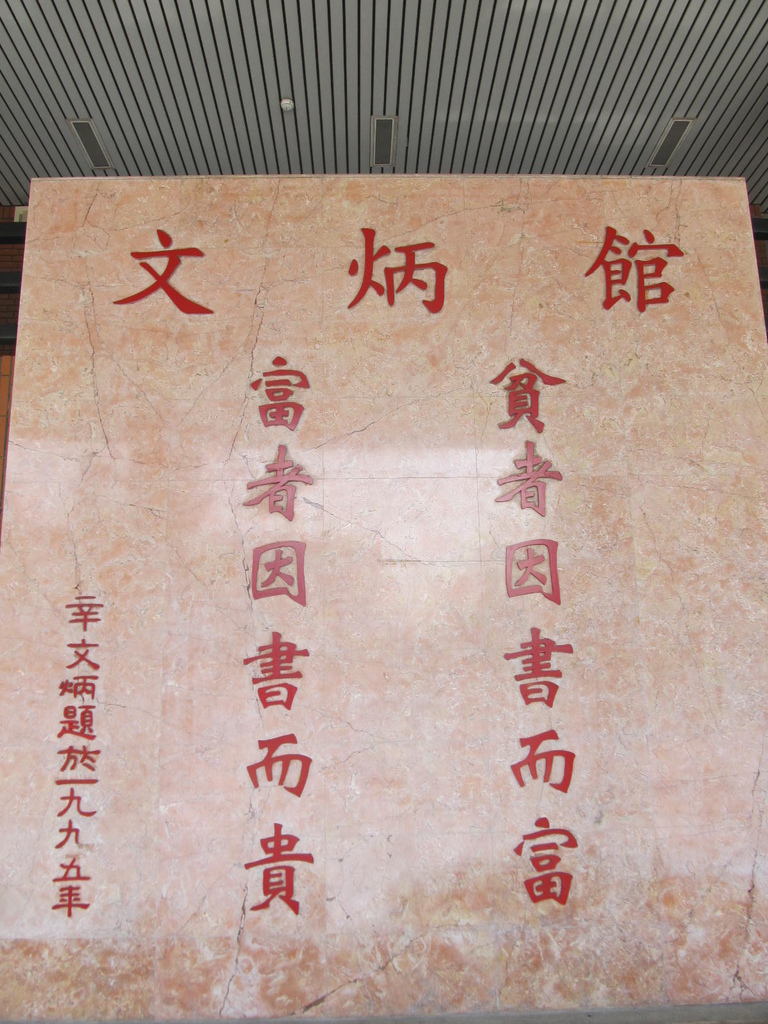 文炳館
貧者因書而富
富者因書而貴
辛文炳題於一九九五年